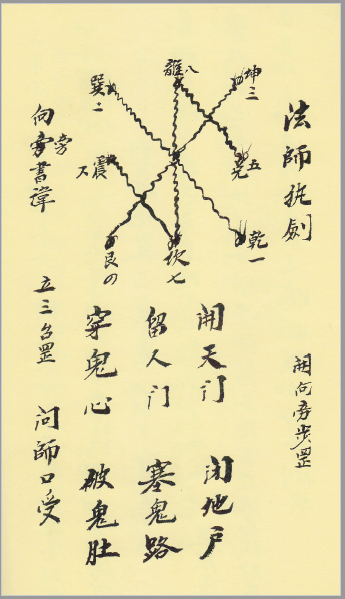 法師执劍
開向旁步罡
坤三
離八
巽二
兌五
震
乾一
坎七
艮
開天门
闭地户
留人门
塞鬼路
穿鬼心
破鬼肚
向旁書諱
旁
立三台罡
问師口受